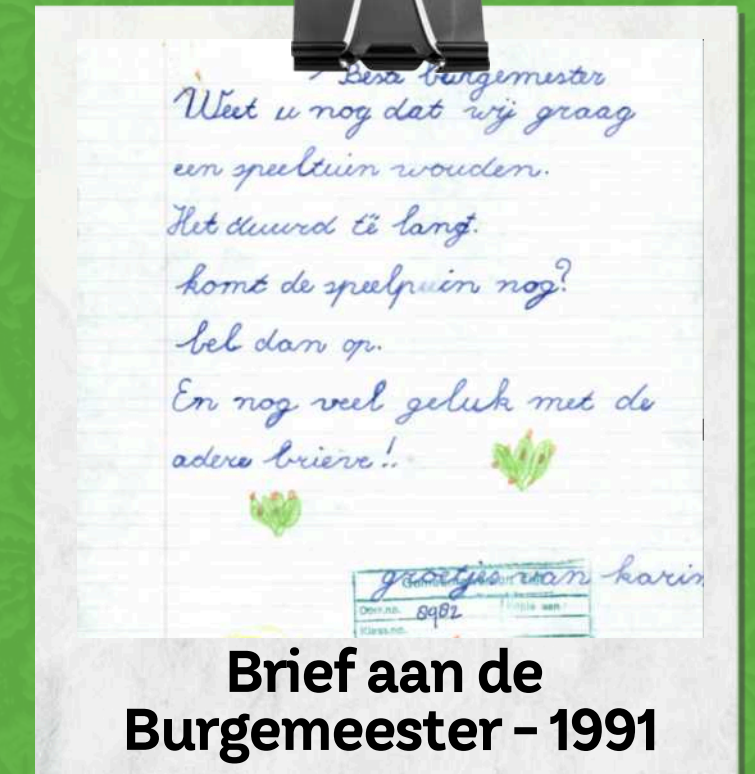 Beste burgemester
Weet u nog dat wij graag
een speeltuin wouden.
Het duurd të lang.
komt de speelpuin nog?
bel dan op.
En nog veel geluk met de
adere brieve!
groetjes van karin
Doss.no. 8982
Klass.no.
Brief aan de
Burgemeester - 1991